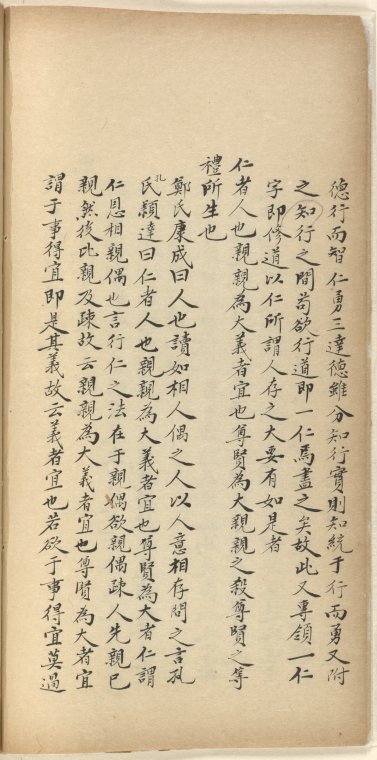 德行而智仁勇三達德雖分知行實則知統于行而勇又附
之知行之間苟欲行道即一仁焉盡之矣故此又專領一仁
字即修道以仁所謂人存之大要有如是者
仁者人也親親為大義者宜也尊賢為大親親之殺尊賢之等
禮所生也
鄭氏康成曰人也讀如相人偶之人以人意相存問之言孔
氏穎達曰仁者人也親親為大義者宜也尊賢為大者仁謂
孔
仁恩相親偶也言行仁之法在于親偶欲親偶疎人先親己
親然後比親及疎故云親親為大義者宜也尊賢為大者宜
謂于事得宜即是其義故云義者宜也若欲于事得宜莫過